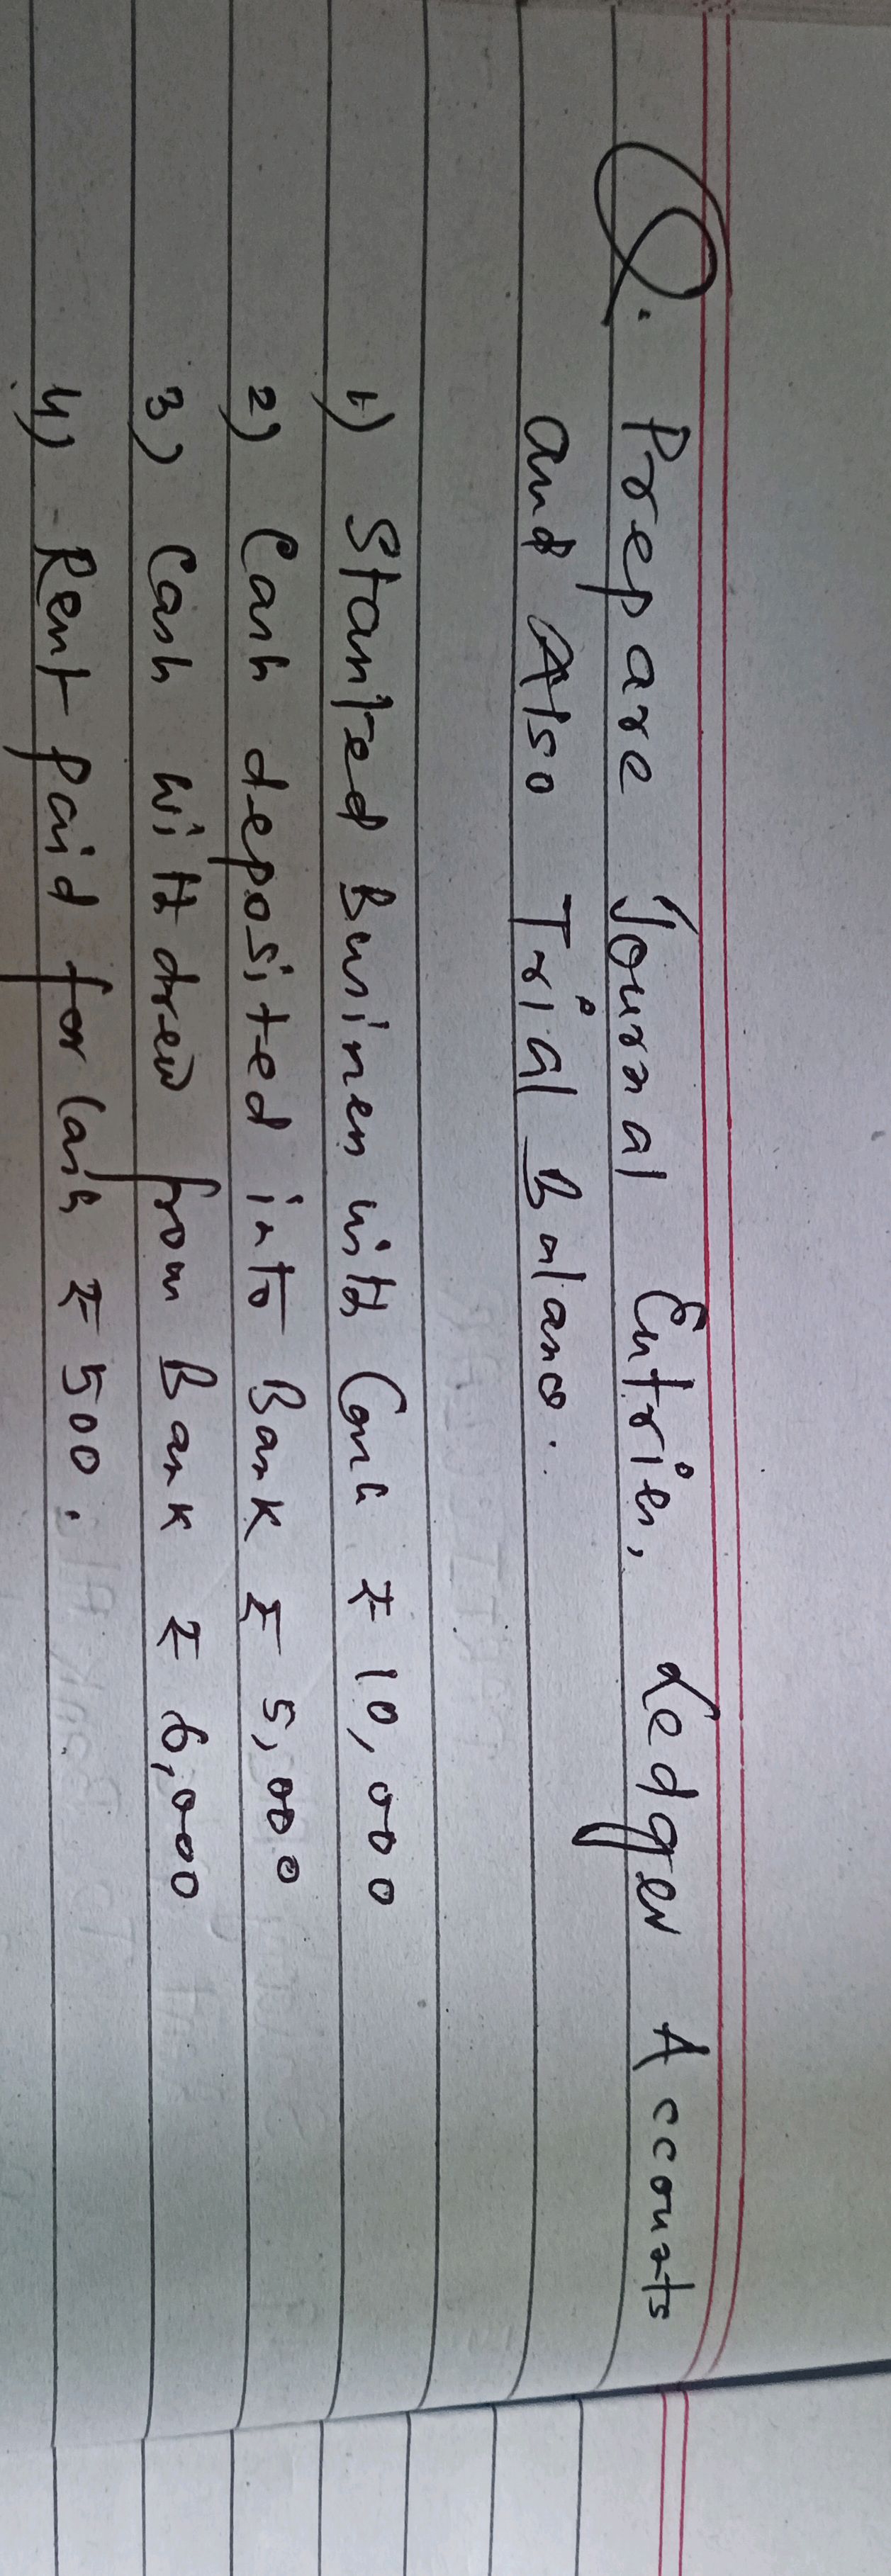 Q. Prepare Journal Entries, Ledger Accounts
and Also Trial Balance.
1) Started Business with Cash ₹ 10,000
2) Cash deposited into Bank ₹ 5,000
3) Cash withdrew from Bank ₹ 6,000
4) Rent paid for Cash ₹ 500.